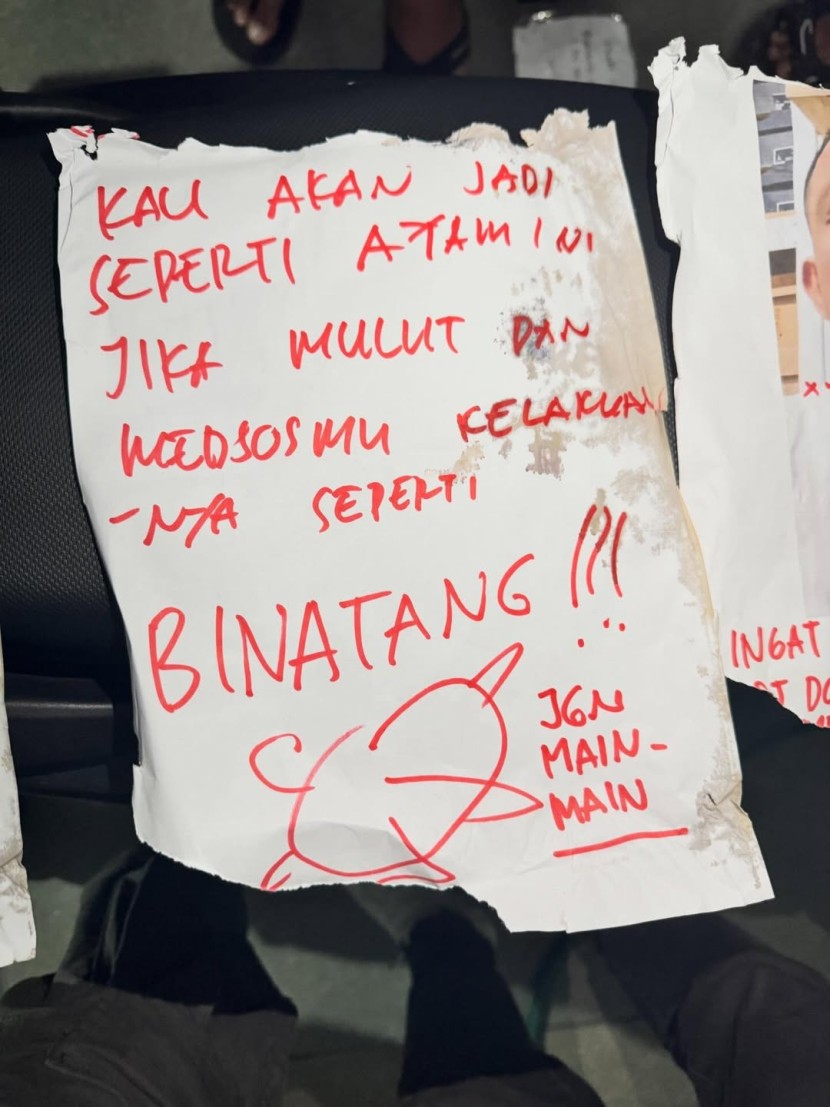 KAU AKAN JADI
SEPERTI AYAM INI
JIKA MULUT DAN
MEDSOSMU KELAKUAN
-NYA SEPERTI
BINATANG!!!
JGN
MAIN-
MAIN
INGAT